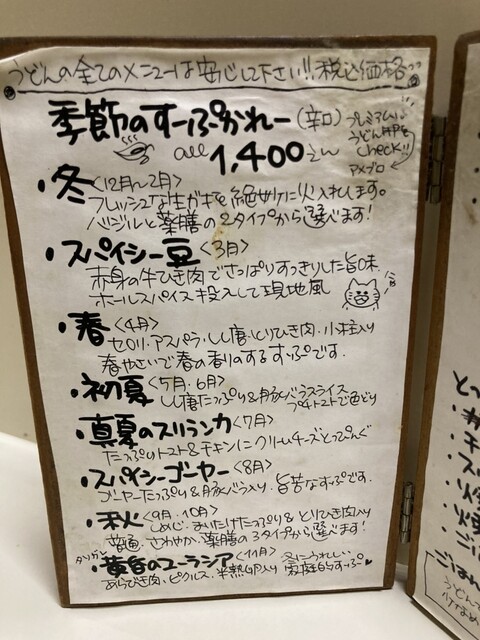 うどんの全てのメニューは安心して下さい!!税込価格
季節のすーぷかれー(辛口)
all 1,400えん
プレミアムい
うどんHPを
check!!
アメブロ
・冬<12月~2月>
フレッシュな生ガキを絶妙に火入れします。
バジルと薬膳の2タイプから選べます!
・スパイシー豆<3月>
赤身の牛ひき肉でさっぱりすっきりした旨味
ホールスパイス投入して現地風
・春<4月>
セロリ・アスパラ・しし唐・とりひき肉・小柱入り
春やさいで春の香りのするすっぷです。
・初夏<5月・6月>
しし唐たっぷり&豚バラうスライス
プチトマトで色どり
・真夏のスリランカ<7月>
たっぷりトマト&チキンにクリームチーズとっぴんぐ
・スパイシーゴーヤー<8月>
ゴーヤーたっぷり&豚バラ入り。旨苦なすっぷです。
・秋<9月・10月>
しめじ・まいたけたっぷり&とりひき肉入り
普通・さわやか・薬膳の3タイプから選べます!
・黄昏のユーラシア<11月>
タソガレ
あらびき肉、ピクルス、半熟卵入り
冬にうれしい
家庭的すっぷ♥
ごはん
うどん